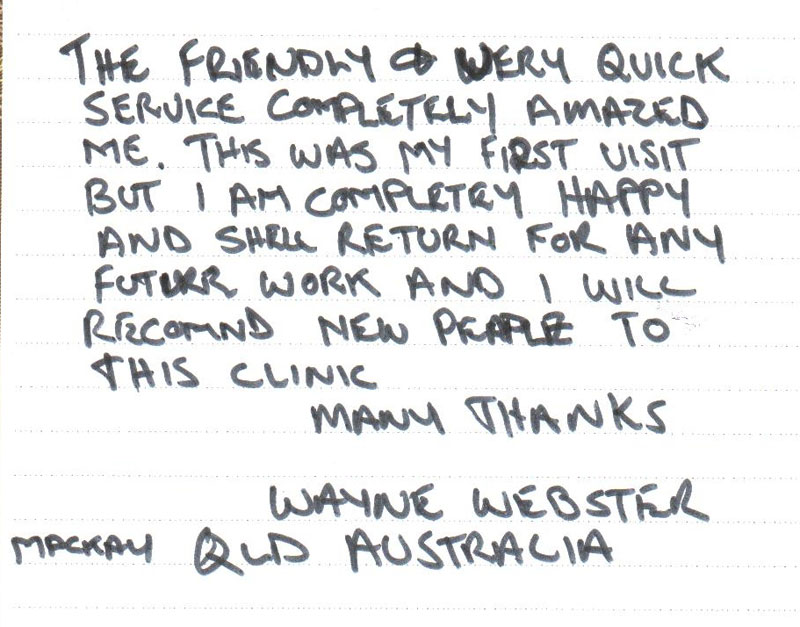 THE FRIENDLY & VERY QUICK
SERVICE COMPLETELY AMAZED
ME. THIS WAS MY FIRST VISIT
BUT I AM COMPLETEY HAPPY
AND SHELL RETURN FOR ANY
FUTURR WORK AND I WILL
RECOMND NEW PEAPLE TO
THIS CLINIC
MANY THANKS
WAYNE WEBSTER
MACKAY QLD AUSTRALIA